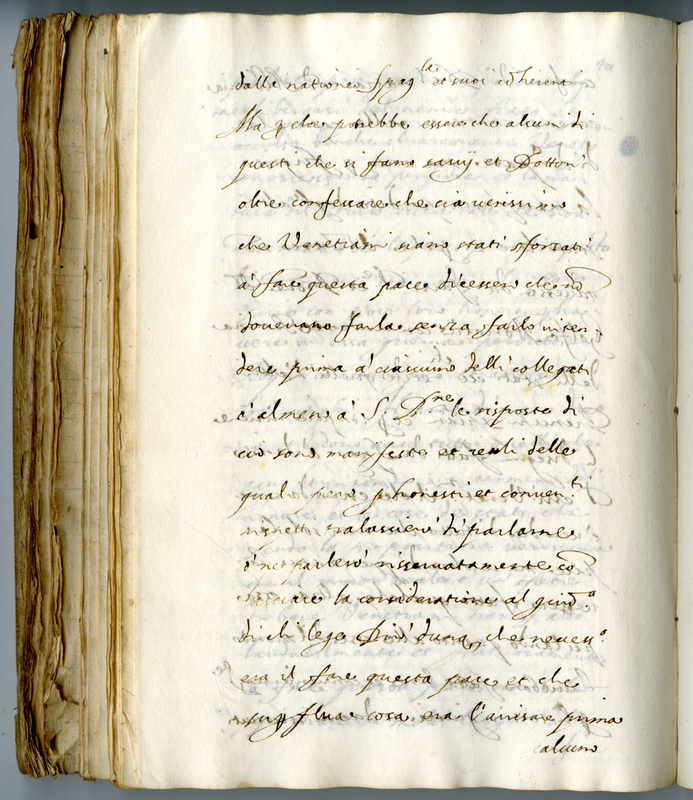 dalla natione Spag.la et suoi adherenti
Ma p che potrebbe essere che alcuni di
questi che si fano savij et Dottori
oltre confessare che sia verissimo
che Venetiani siano stati sforzati
à fare questa pace dicessero che nõ
dovevano farla senza farlo inten-
dere prima à ciascuno delli collegati
ò almeno à S. le risposte di
ciò sono manifeste et reali delle
quali però p honesti et conven.ti
rispetti tralascierò di parlarne
ò ne parlerò riservatamente cõ
lasciare la consideratione al giud.o
di chi lege Dico dunq, che necess.o
era il fare questa pace et che
supflua cosa era l'avisare prima
alcuno